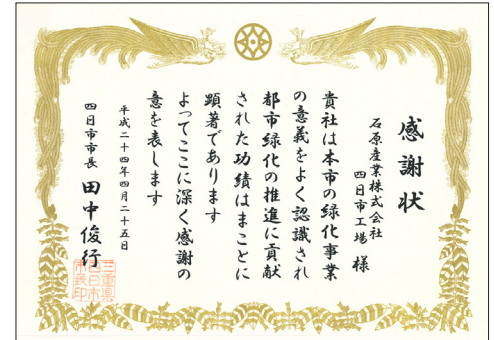 感謝状
石原産業株式会社
四日市工場 様
貴社は本市の緑化事業
の意義をよく認識され
都市緑化の推進に貢献
された功績はまことに
顕著であります
よってここに深く感謝の
意を表します
平成二十四年四月二十五日
四日市市長 田中俊行